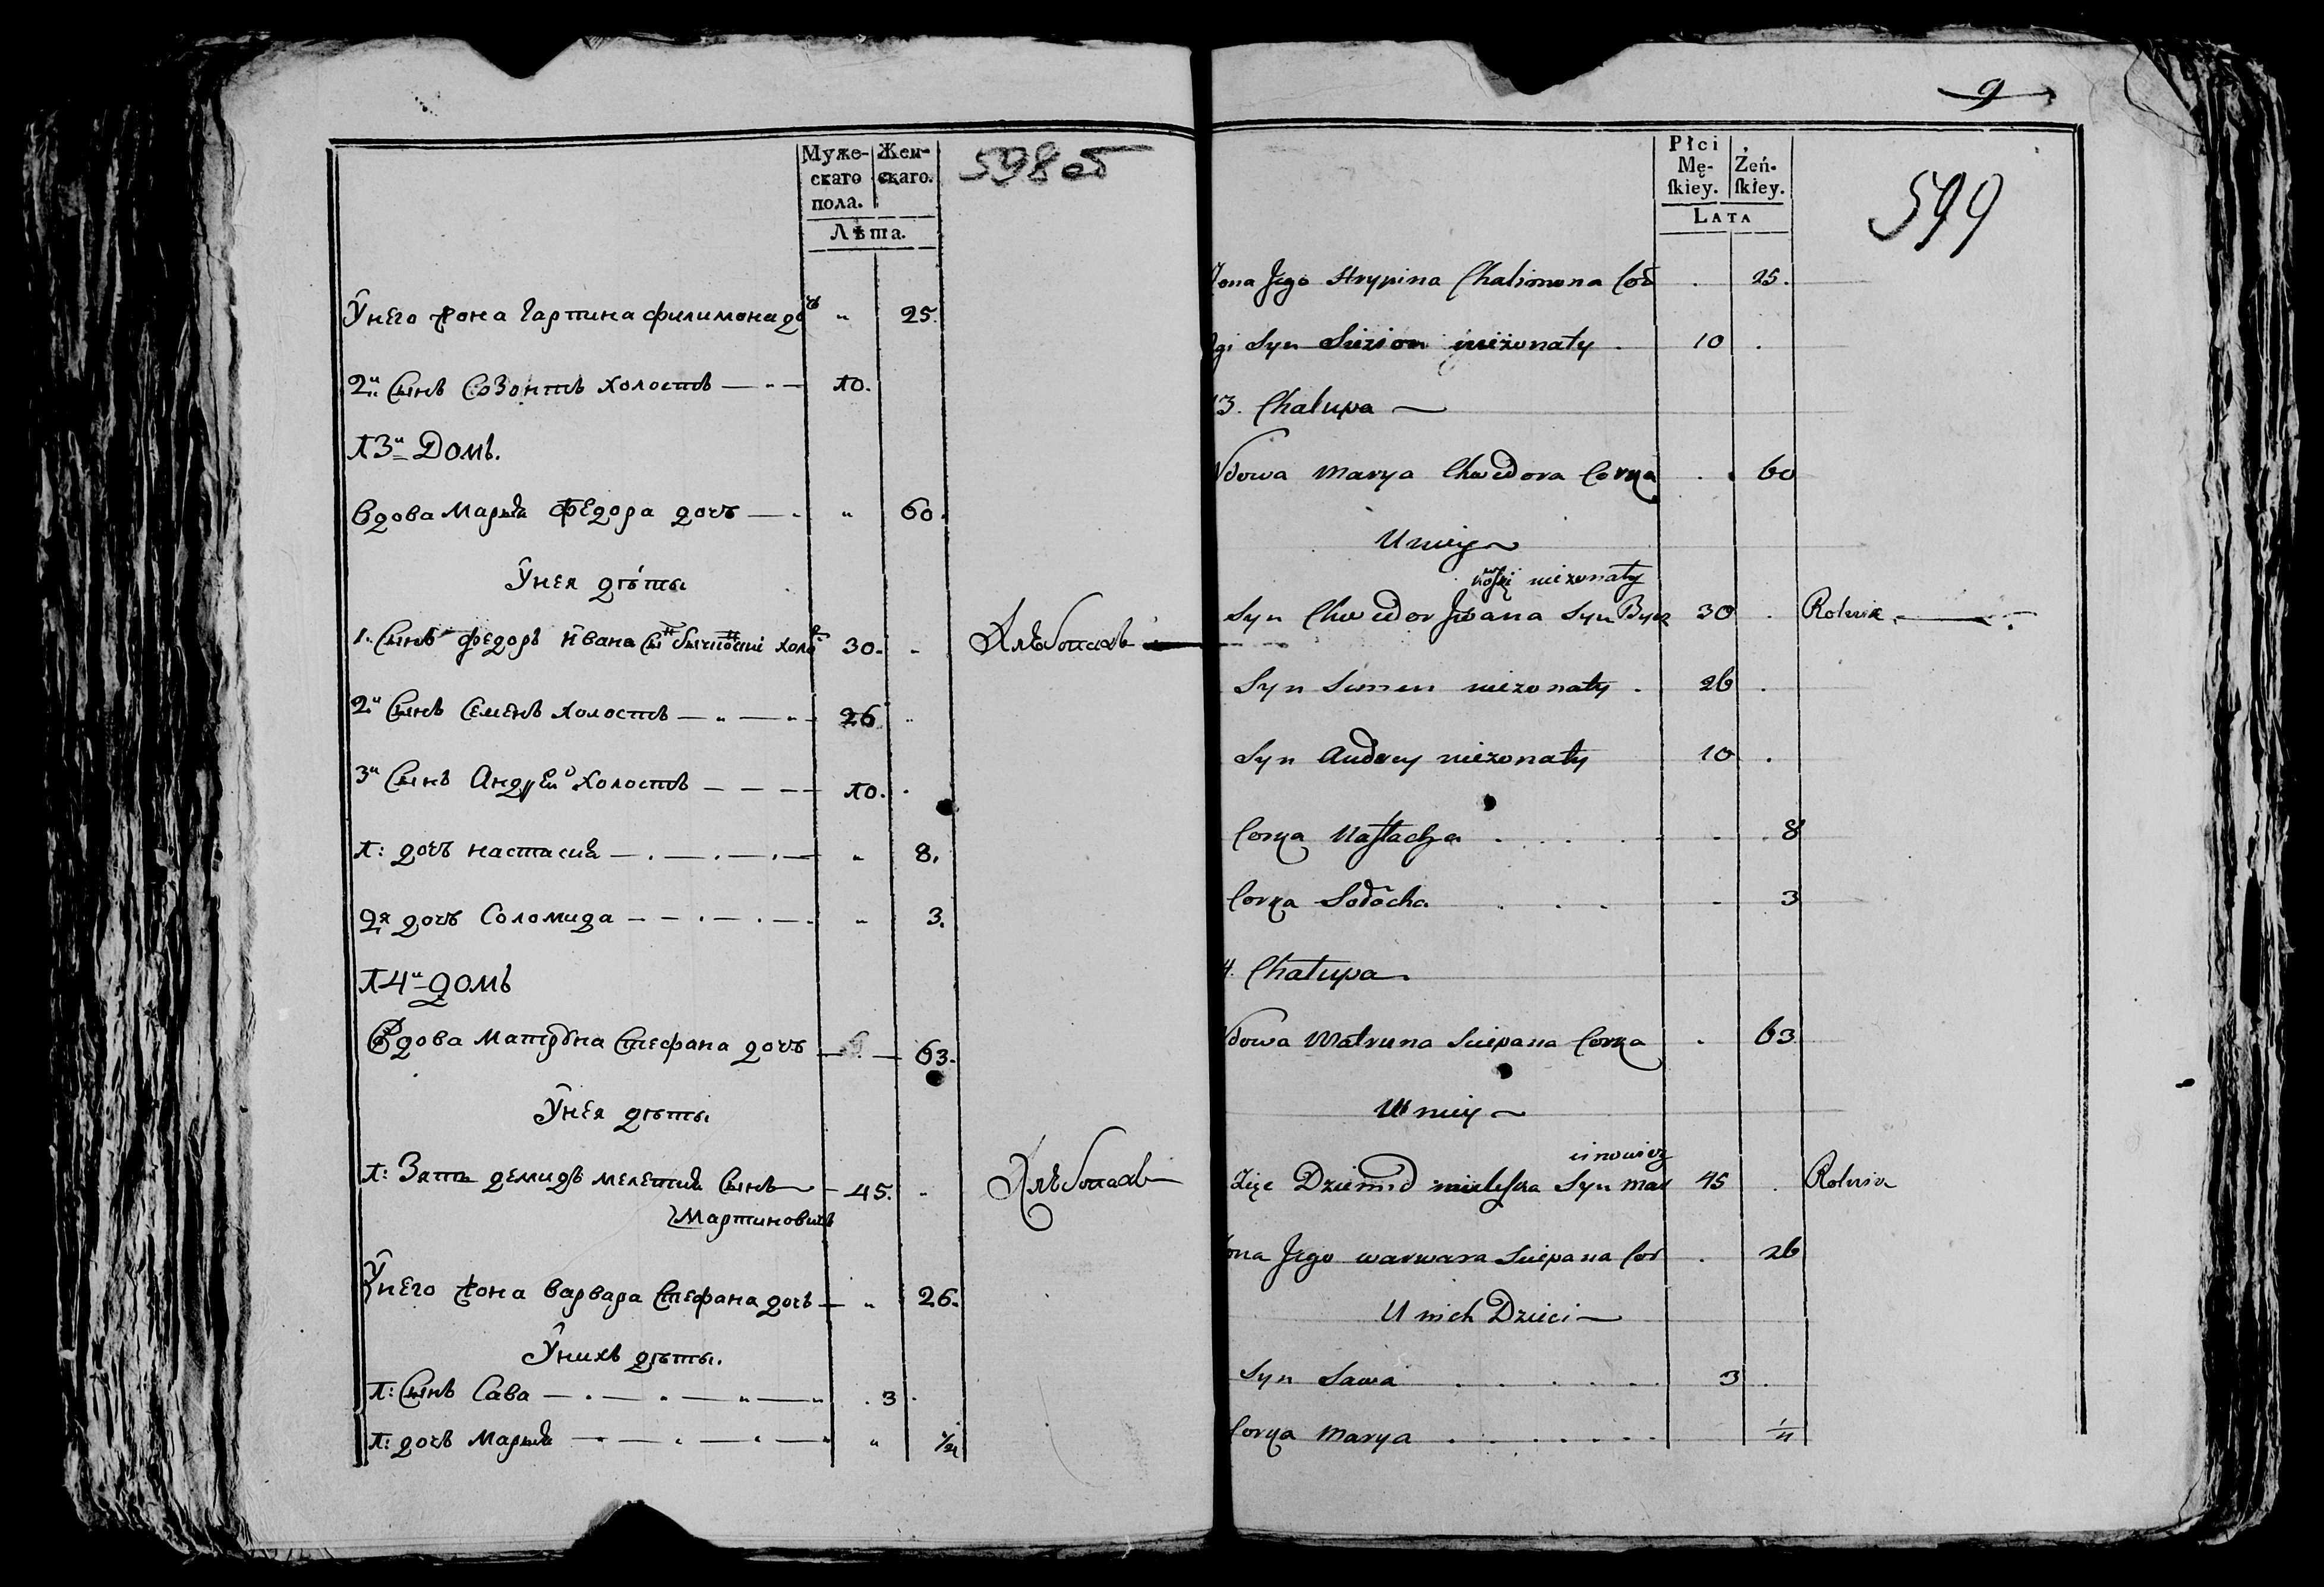 Муже-
скаго
пола.
Жен-
скаго.
Лѣта.
598 об
Унего жона Гарпина филимона дочь " 25.
2й Сынъ Созонтъ холостъ 10.
13й Домъ.
Вдова Марья Федора дочь " 60.
Унея дѣты
1. Сынъ федоръ Ивана Сынъ холо 30. Хлѣбопахъ
2й Сынъ Семенъ холостъ 26
3й Сынъ Андрей холостъ 10.
1: дочь настасия " 8.
2я дочь Соломида " 3.
14й домъ
Вдова Матруна Стефана дочь 63.
Унея дѣты
1: Зять демидъ мелетия Сынъ 45. Хлѣбопахъ
Мартиновичъ
Унего жона варвара Стефана дочь " 26.
Унихъ дѣты.
1: Сынъ Сава 3
1: дочь Марья "
9
Płci
Mę-
ſkiey.
Żeń-
ſkiey.
LATA
599
Zona Jego Hrypina Chalimona Cor 25.
gi Syn niezonaty 10
13. Chalupa
Wdowa Marya Chwedora Corka 60
U niey
niezonaty
Syn Chwedor Jwana Syn 30 Rolnik
Syn Simon niezonaty 26
Syn Andrey niezonaty 10
Corka Naſtazya 8
Corka 3
4. Chalupa
Wdowa Matruna Sciepana Corka 63
U niey
cinowicz
Zięc Dziemid Syn Mar 45 Rolnik
Zona Jego warwara Sciepana Cor 26
U nich Dzieci
Syn Sawa 3
Corka Marya